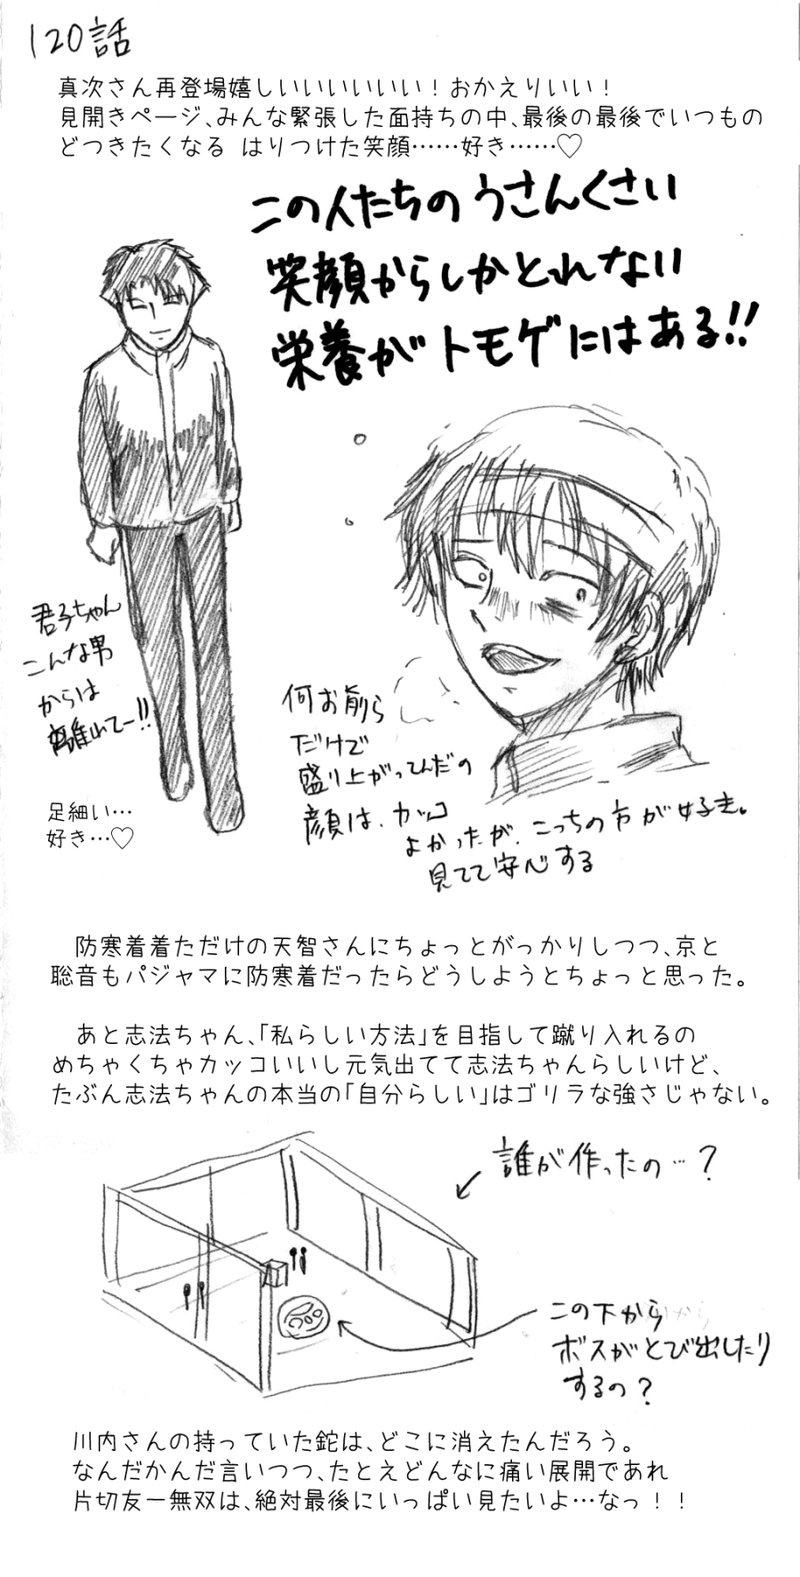 120話
真次さん再登場嬉しいいいいいい!おかえりいい!
見開きページ、みんな緊張した面持ちの中、最後の最後でいつもの
どつきたくなる はりつけた笑顔……好き……♡
この人たちのうさんくさい
笑顔からしかとれない
栄養がトモゲにはある!!
君子ちゃん
こんな男
からは
離れてー!!
足細い…
好き…♡
何お前ら
だけで
盛り上がってんだの
顔は、カッコ
よかったが、こっちの方が好き。
見てて安心する
防寒着着ただけの天智さんにちょっとがっかりしつつ、京と
聡音もパジャマに防寒着だったらどうしようとちょっと思った。
あと志法ちゃん、「私らしい方法」を目指して蹴り入れるの
めちゃくちゃカッコいいし元気出てて志法ちゃんらしいけど、
たぶん志法ちゃんの本当の「自分らしい」はゴリラな強さじゃない。
誰が作ったの…?
この下から
ボスがとび出したり
するの?
川内さんの持っていた鉈は、どこに消えたんだろう。
なんだかんだ言いつつ、たとえどんなに痛い展開であれ
片切友一無双は、絶対最後にいっぱい見たいよ…なっ!!